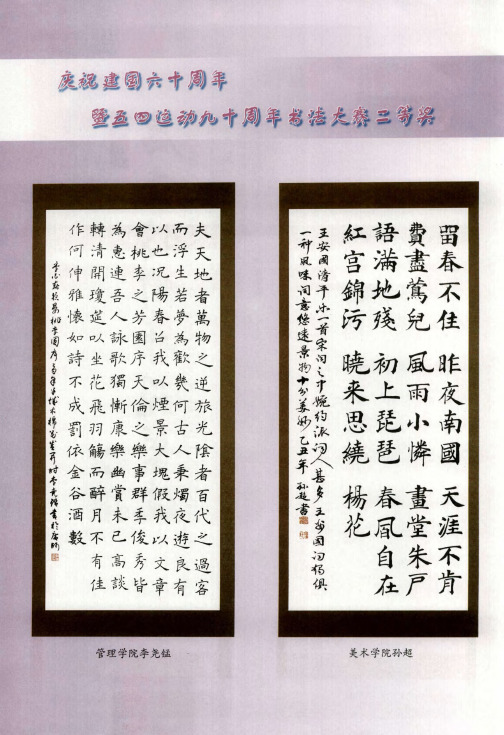 庆祝建国六十周年
暨五四运动九十周年书法大赛二等奖
夫天地者萬物之逆旅光陰者百代之過客
而浮生若夢為歡幾何古人秉燭夜遊良有
以也况陽春召我以煙景大塊假我以文章
會桃李之芳園序天倫之樂事群季俊秀皆
為惠連吾人詠歌獨慚康樂幽賞未已高談
轉清開瓊筵以坐花飛羽觴而醉月不有佳
作何伸雅懷如詩不成罰依金谷酒數
留春不住 昨夜南國 天涯不肯
費盡鶯兒 風雨小憐 畫堂朱戸
語滿地殘 初上琵琶 春風自在
紅宫錦污 曉来思繞 楊花
王安國清平乐一首宋词之中婉约派词人甚多王安国词独俱
一种風味词意悠遠景物十分美妙乙丑年 孙超書
管理学院李尧锰
美术学院孙超